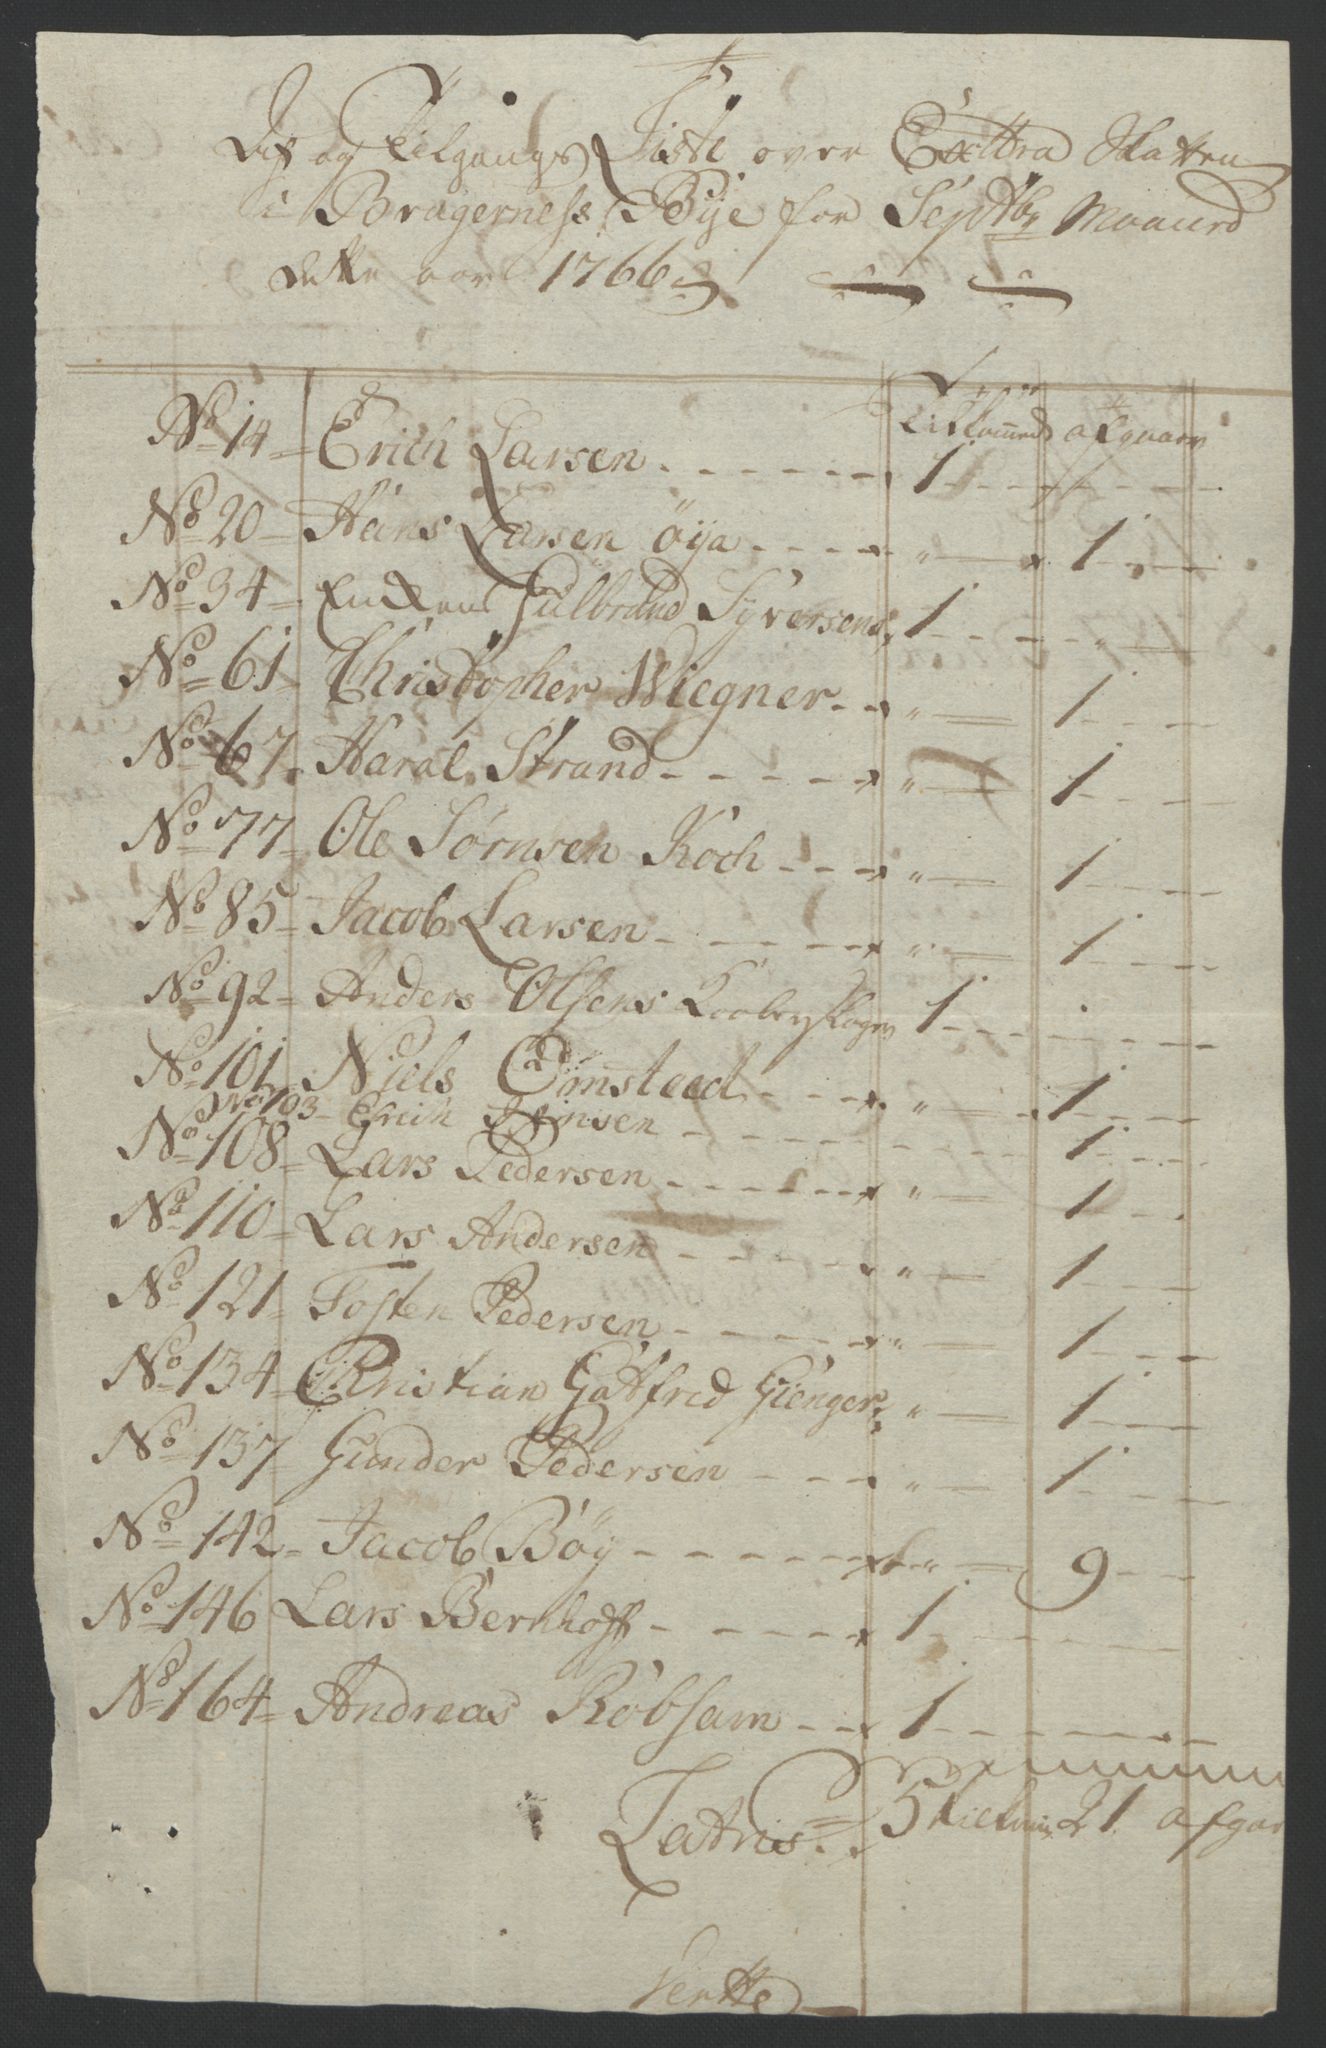 Af og Tilgangs Liste over Exsttra Skatten
i Bragerness Bÿe for Septbr Maaned
dette aar 1766
Tilkomed afgaaen
No 14 Erich Larsen 1
No 20 Hans Larsen öÿa " 1
No 34 Enchen Gulbrand Syversens 1 "
No 61 Christopher Wiegner " 1
No 67 Haral Strand " 1
No 77 Ole Sørnsen Koch " 1
No 85 Jacob Larsen " 1
No 92 Anders Olsens 1
No 101 Niels Omsteed " 1
No 103 Erich Jensen 1
No 108 Lars Pedersen " 1
No 110 Lars Andersen " 1
No 121 Tosten Pedersen " 1
No 134 Christian Gotfred Gienger " 1
No 137 Gunder Pedersen " 1
No 142 Jacob Böÿ " 9
No 146 Lars Bernhoff 1
No 164 Andreas Robsam 1
Latris 5 tilkom 21 afgaa
Vertte